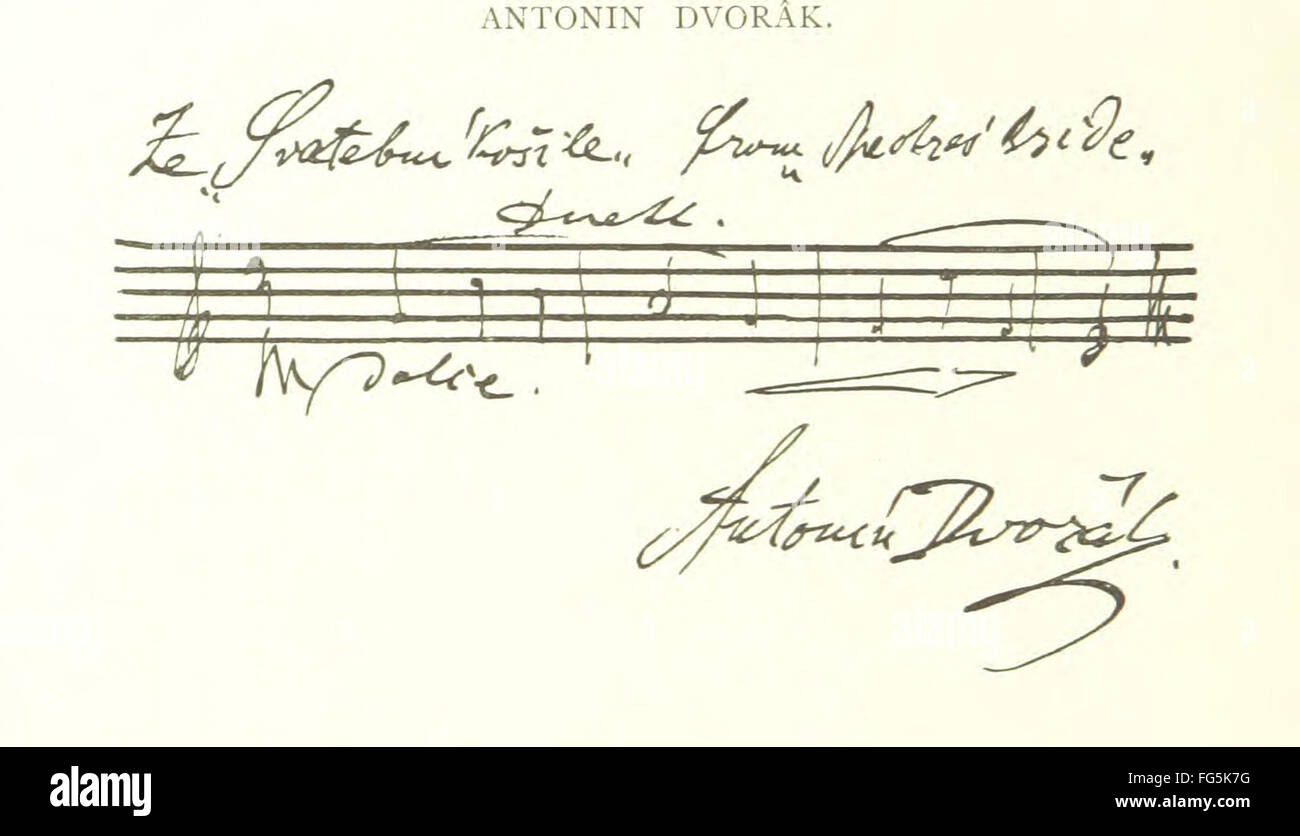 ANTONIN DVORÂK.
Ze „Svatebni Košile„ from „Spectres Bride„
Duett.
Mp dolce.
Antonín Dvořák.
alamy
Image ID: FG5K7G
www.alamy.com